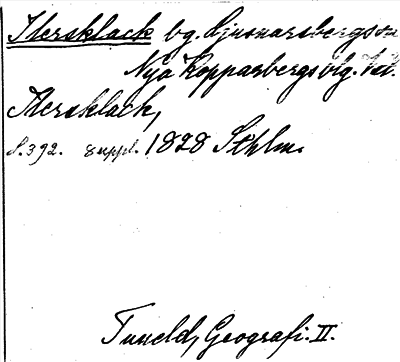 Ilersklack bg. Ljusnarsbergs sn
Nya Kopparbergs vlg. Vstl.
Ilersklack,
S. 392. suppl. 1828 Sthlm.
Tuneld, Geografi. II.